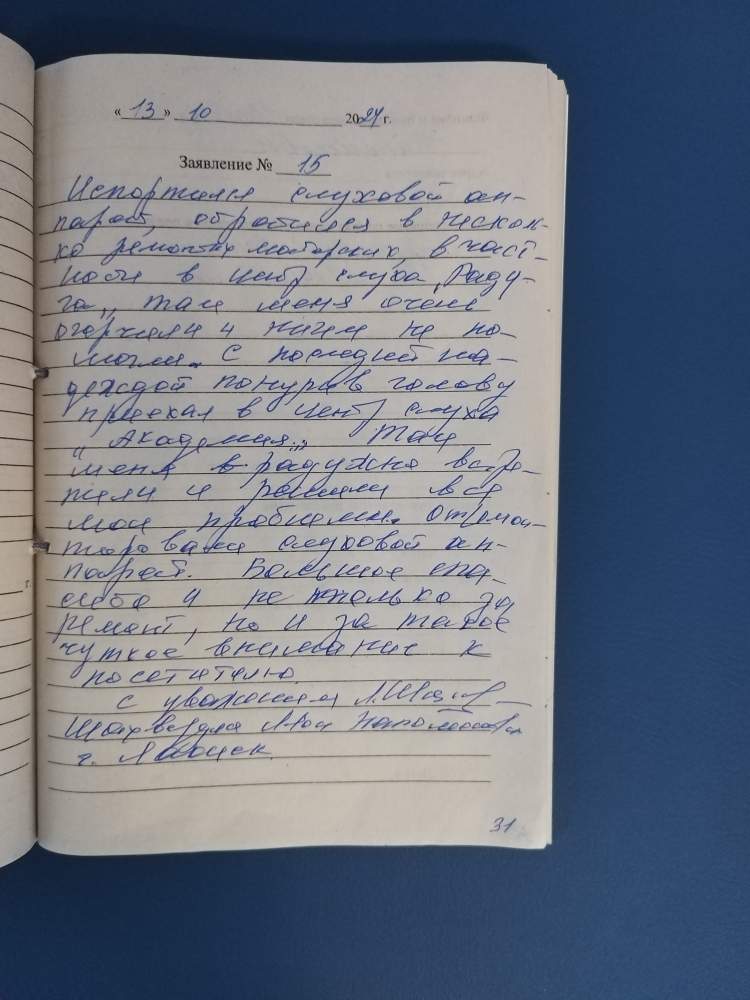 « 13 » 10 2024 г.
Заявление № 15
Испортился слуховой ап-
парат, обратился в несколь-
ко ремонтных мастерских, в част-
ности в центр слуха „Раду-
га„ там меня очень
огорчили и ничем не по-
могли. С последней на-
деждой понурив голову
приехал в центр слуха
„Академия„ Там
меня в радужно встре-
тили и решили все
мои проблемы. Отремон-
тировали слуховой ап-
парат. Большое спа-
сибо и не только за
ремонт, но и за такое
чуткое внимание к
посетителю.
с уважением
г.
31
г.